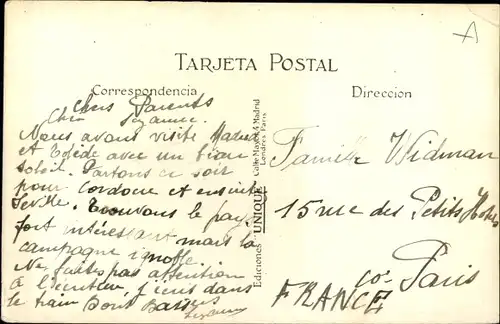 TARJETA POSTAL
Correspondencia
Dirección
Chers Parents
Cher Suzanne.
Nous avons visité Madrid
et Tolède avec un beau
soleil. Partons ce soir
pour Cordoue et ensuite
Séville. Trouvons le pays
fort intéressant mais la
campagne
Ne faites pas attention
à l'écriture, j'écris dans
le train Bons Baisers
Ediciones UNIQUE Calle Madrid
Londres París
Famille Widman
15 rue des Petits Hotels
Paris
FRANCE